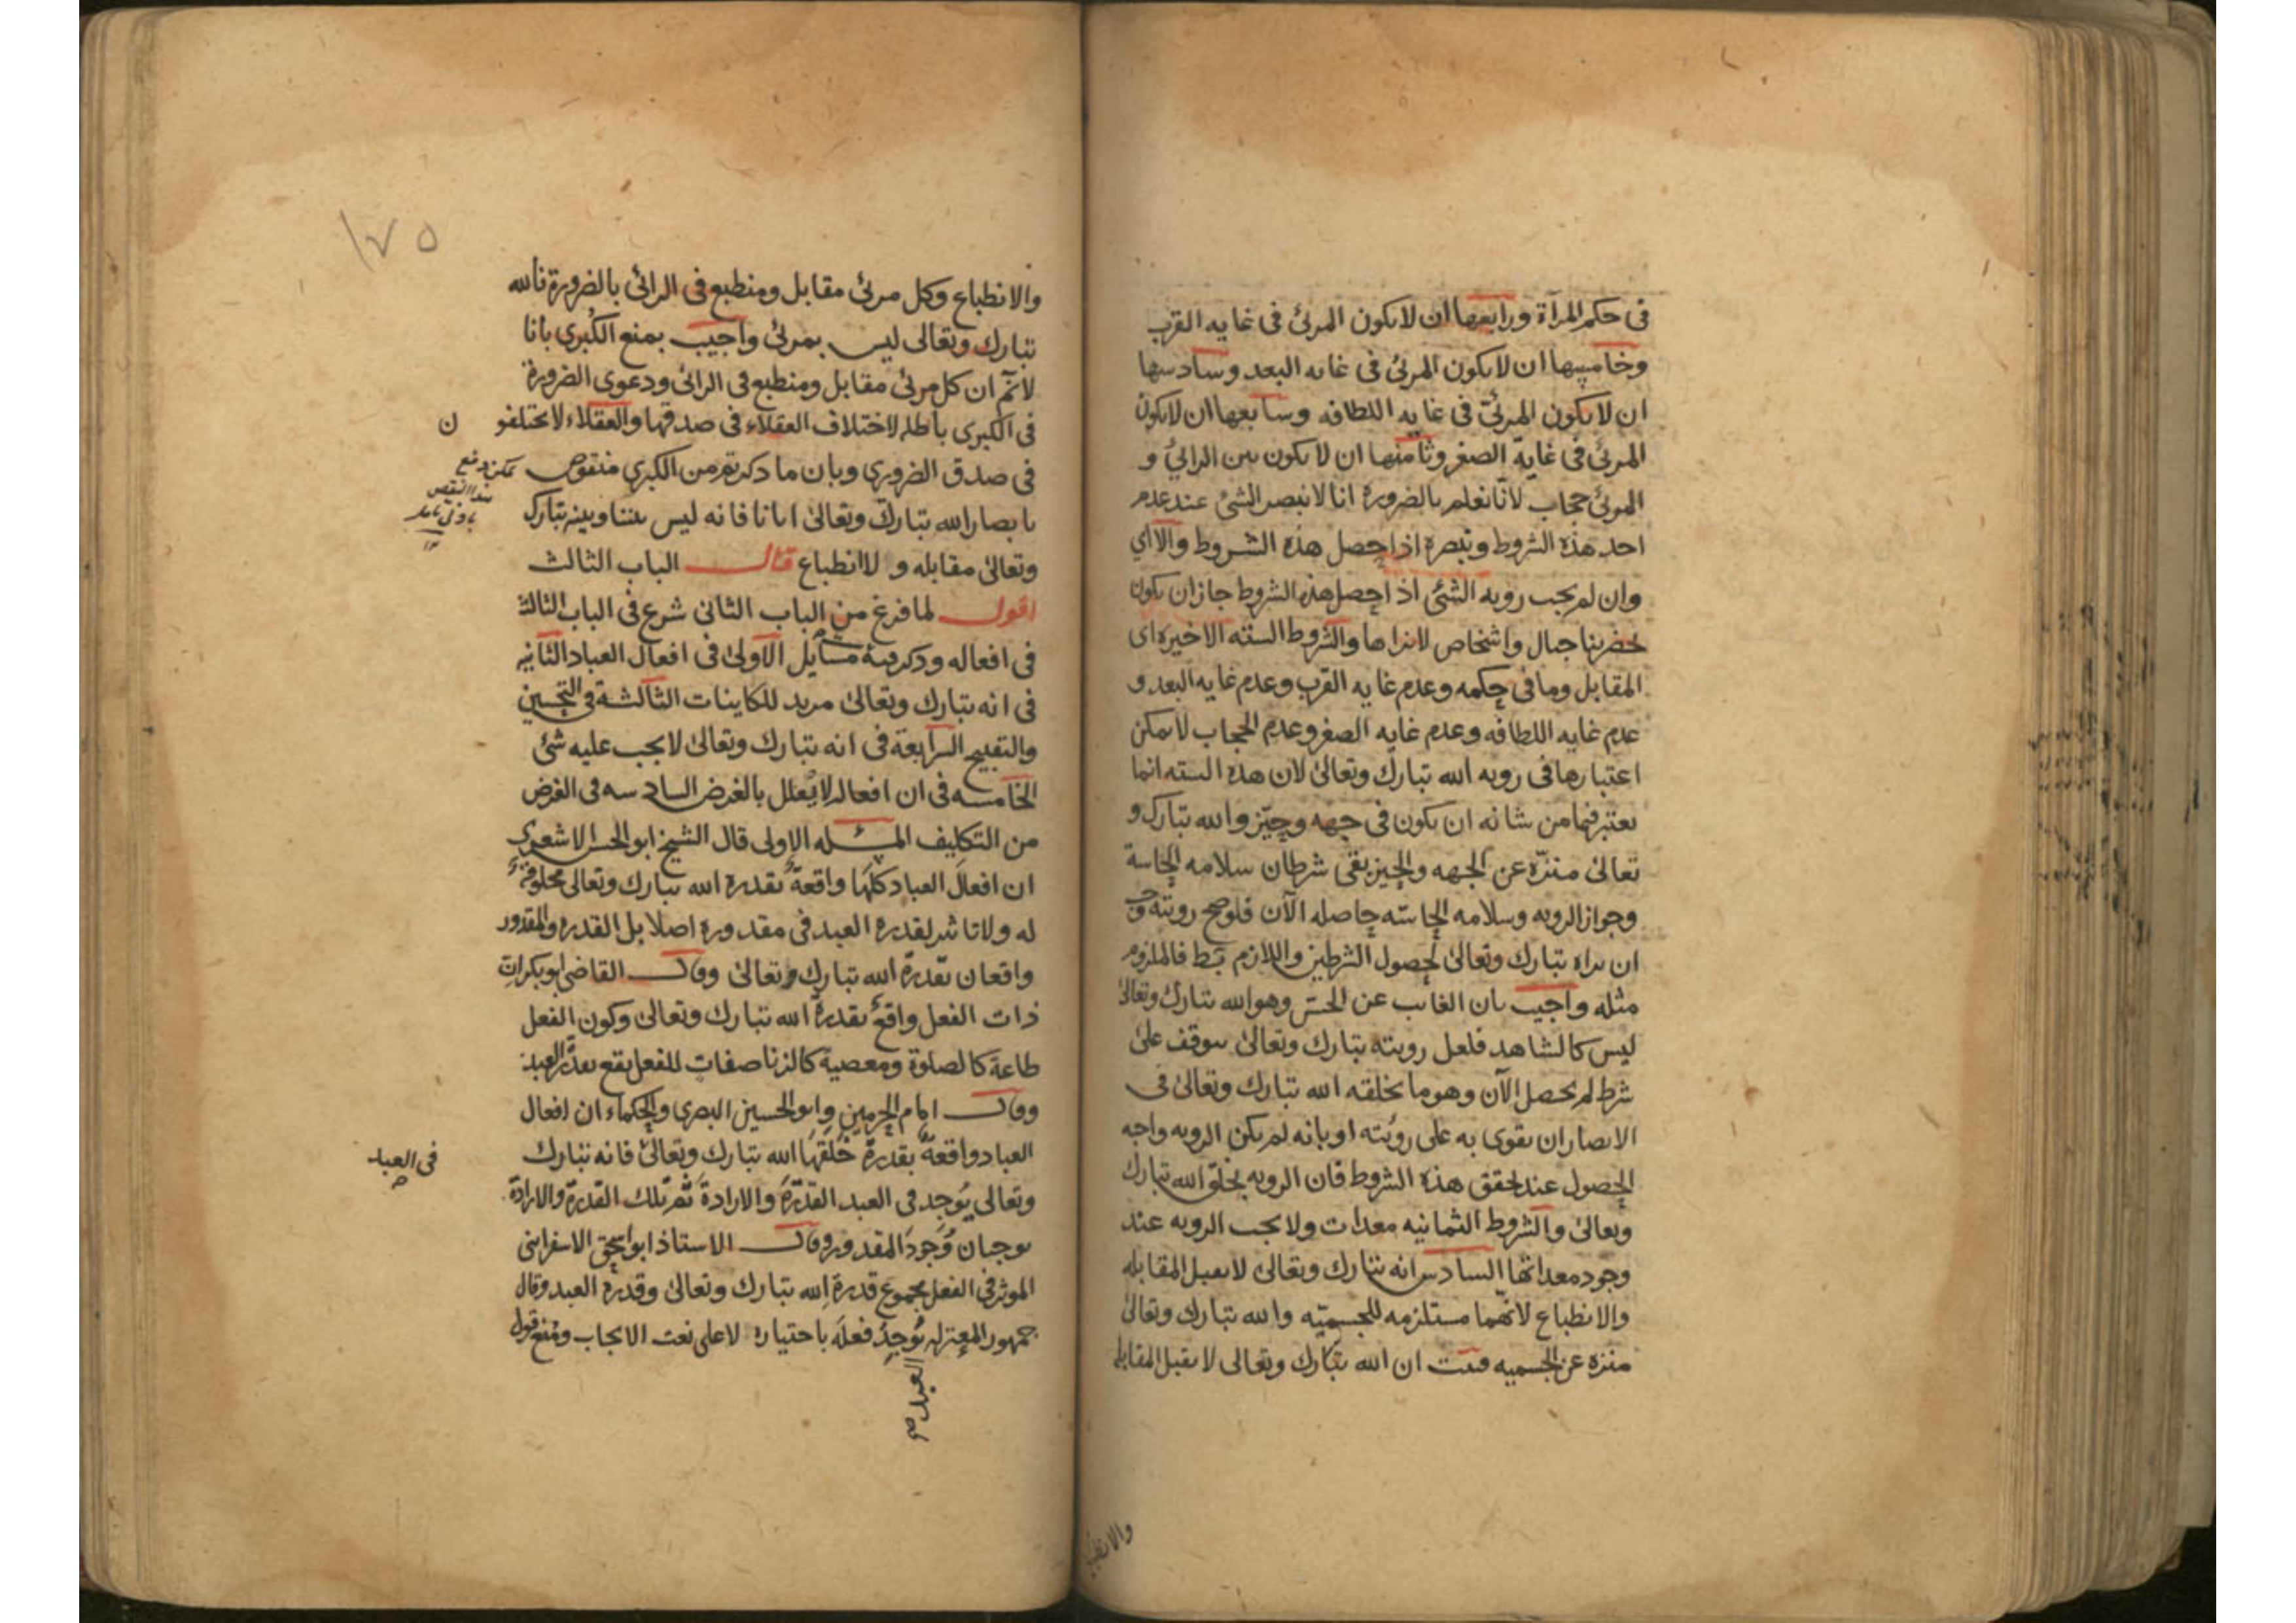 فى حكم المرآة ورابعها ان لا يكون المرئ فى غايه القرب
وخامسها ان لا يكون المرئ فى غايه البعد وسادسها
ان لا يكون المرئ فى غايه اللطافه وسابعها ان لا يكون
المرئ فى غاية الصغر وثامنها ان لا يكون بين الرائ و
المرئ حجاب لانا نعلم بالضرورة انا لا نبصر الشئ عند عدم
احد هذه الشروط ونبصره اذا حصل هذه الشروط والا اي
وان لم يجب رويه الشئ اذا حصل هذه الشروط جاز ان يكون
بحضرتنا جبال واشخاص لا نراها والشروط السته الاخيره اى
المقابل وما فى حكمه وعدم غايه القرب وعدم غايه البعد و
عدم غايه اللطافه وعدم غايه الصغر وعدم الحجاب لا يمكن
اعتبارها فى رويه الله تبارك وتعالى لان هذه السته انما
يعتبر فيما من شانه ان يكون فى جهه وحيّز والله تبارك و
تعالى منزّه عن الجهه والحيز بقى شرطان سلامه الحاسة
وجواز الرويه وسلامه الحاسّه حاصله الآن فلو صح رويته وجب
ان نراه تبارك وتعالى لحصول الشرطين واللازم بط فالملزوم
مثله واجيب بان الغائب عن الحسّ وهو الله تبارك وتعالى
ليس كالشاهد فلعل رويته تبارك وتعالى يتوقف على
شرط لم يحصل الآن وهو ما يخلقه الله تبارك وتعالى فى
الابصار ان يقوى به على رويته او بانه لم يكن الرويه واجبه
الحصول عند تحقق هذه الشروط فان الرويه بخلق الله تبارك
وتعالى والشروط الثمانيه معدات ولا يجب الرويه عند
وجود معداتها السادس انه تبارك وتعالى لا يقبل المقابله
والانطباع لانهما مستلزمه للجسميّه والله تبارك وتعالى
منزه عن الجسميه فثبت ان الله تبارك وتعالى لا يقبل المقابله
١٧٥
والانطباع وكل مرئ مقابل ومنطبع فى الرائ بالضرورة فالله
تبارك وتعالى ليس بمرئ واجيب بمنع الكبرى بانا
لا نم ان كل مرئ مقابل ومنطبع فى الرائ ودعوى الضرورة
فى الكبرى باطله لاختلاف العقلاء فى صدقها والعقلاء لا يختلفو ن
فى صدق الضرورى وبان ما ذكرتم من الكبرى منقوض
بابصار الله تبارك وتعالى ايانا فانه ليس بيننا وبينه تبارك
وتعالى مقابله ولا انطباع قال الباب الثالث
اقول لما فرغ من الباب الثانى شرع فى الباب الثالث
فى افعاله وذكر فيه مسايل الاولى فى افعال العباد الثانيه
فى انه تبارك وتعالى مريد للكاينات الثالثة فى التحسين
والتقبيح الرابعة فى انه تبارك وتعالى لا يجب عليه شئ
الخامسه فى ان افعاله لا يُعلل بالغرض السادسه فى الغرض
من التكليف المسئله الاولى قال الشيخ ابو الحسن الاشعرى
ان افعال العباد كلها واقعة بقدرة الله تبارك وتعالى مخلوقة
له ولا تاثير لقدرة العبد فى مقدوره اصلا بل القدره والمقدور
واقعان بقدرة الله تبارك وتعالى وقال القاضى ابو بكر ان
ذات الفعل واقع بقدرة الله تبارك وتعالى وكون الفعل
طاعة كالصلوة ومعصية كالزنا صفات للفعل يقع بقدرة العبد
وقال امام الحرمين وابو الحسين البصرى والحكماء ان افعال
العباد واقعة بقدرة خلقها الله تبارك وتعالى فانه تبارك
فى العبد
وتعالى يُوجد فى العبد القدرة والارادة ثم تلك القدرة والارادة
يوجبان وُجود المقدور وقال الاستاذ ابو اسحق الاسفراينى
الموثر فى الفعل مجموع قدرة الله تبارك وتعالى وقدره العبد وقال
جمهور المعتزله يُوجد فعله باختياره لا على نعت الايجاب ومنع قول
العبد صح